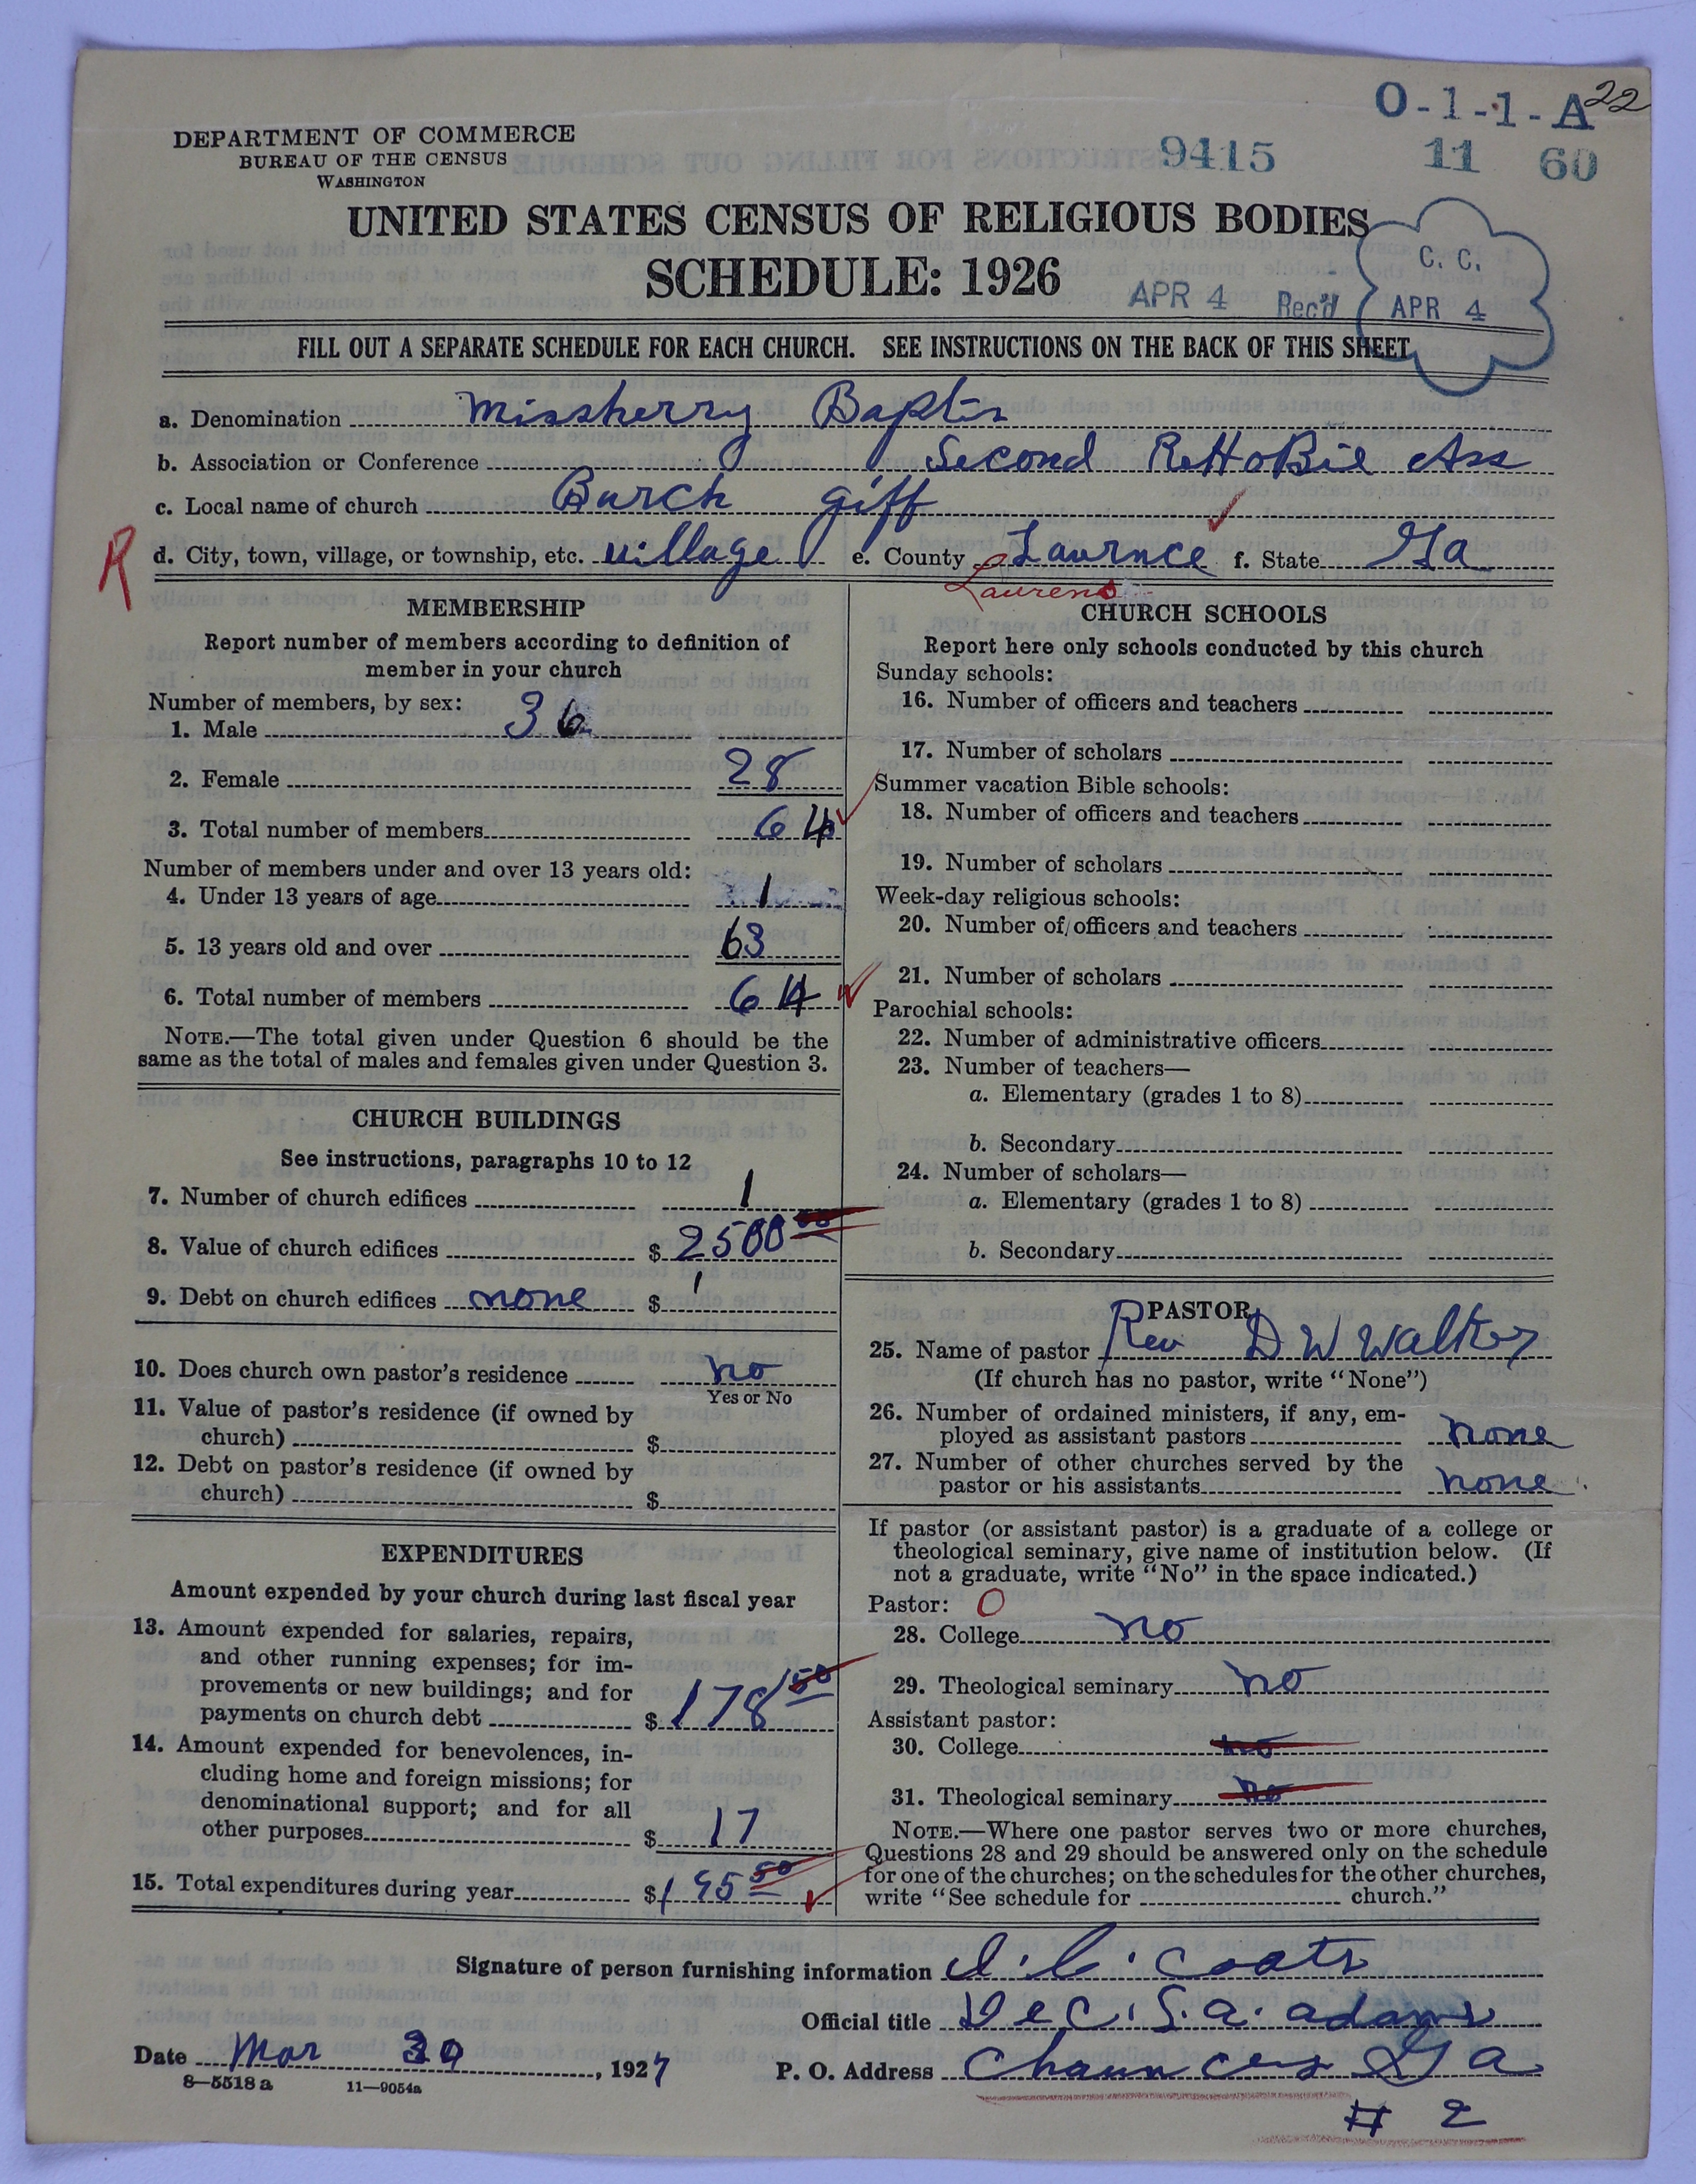 O-1-1-A 22
DEPARTMENT OF COMMERCE
BUREAU OF THE CENSUS
WASHINGTON
9415 11 60
UNITED STATES CENSUS OF RELIGIOUS BODIES
SCHEDULE: 1926
APR 4 Rec'd
C. C.
APR 4
FILL OUT A SEPARATE SCHEDULE FOR EACH CHURCH. SEE INSTRUCTIONS ON THE BACK OF THIS SHEET
a. Denomination Missherry Baptis
b. Association or Conference Second ReHoBie Ass
c. Local name of church Burch giff
R
d. City, town, village, or township, etc. village e. County Laurnce f. State Ga
Laurens
MEMBERSHIP
Report number of members according to definition of
member in your church
Number of members, by sex:
1. Male 36
2. Female 28
3. Total number of members 64
Number of members under and over 13 years old:
4. Under 13 years of age 1
5. 13 years old and over 63
6. Total number of members 64
NOTE.—The total given under Question 6 should be the
same as the total of males and females given under Question 3.
CHURCH BUILDINGS
See instructions, paragraphs 10 to 12
7. Number of church edifices 1
8. Value of church edifices $ 2500 00
9. Debt on church edifices none $
10. Does church own pastor's residence no
Yes or No
11. Value of pastor's residence (if owned by
church) $
12. Debt on pastor's residence (if owned by
church) $
EXPENDITURES
Amount expended by your church during last fiscal year
13. Amount expended for salaries, repairs,
and other running expenses; for im-
provements or new buildings; and for
payments on church debt $ 178 50
14. Amount expended for benevolences, in-
cluding home and foreign missions; for
denominational support; and for all
other purposes $ 17
15. Total expenditures during year $ 195 50
CHURCH SCHOOLS
Report here only schools conducted by this church
Sunday schools:
16. Number of officers and teachers
17. Number of scholars
Summer vacation Bible schools:
18. Number of officers and teachers
19. Number of scholars
Week-day religious schools:
20. Number of officers and teachers
21. Number of scholars
Parochial schools:
22. Number of administrative officers
23. Number of teachers—
a. Elementary (grades 1 to 8)
b. Secondary
24. Number of scholars—
a. Elementary (grades 1 to 8)
b. Secondary
PASTOR
25. Name of pastor Rev D W Walker
(If church has no pastor, write "None")
26. Number of ordained ministers, if any, em-
ployed as assistant pastors none
27. Number of other churches served by the
pastor or his assistants none
If pastor (or assistant pastor) is a graduate of a college or
theological seminary, give name of institution below. (If
not a graduate, write "No" in the space indicated.)
Pastor: O
28. College no
29. Theological seminary no
Assistant pastor:
30. College no
31. Theological seminary no
NOTE.—Where one pastor serves two or more churches,
Questions 28 and 29 should be answered only on the schedule
for one of the churches; on the schedules for the other churches,
write "See schedule for church."
Signature of person furnishing information J. C. Coats
Official title Dec. S. a. adams
Date Mar 30, 1927 P. O. Address Chauncey Ga
8—5518 a 11—9054a
# 2